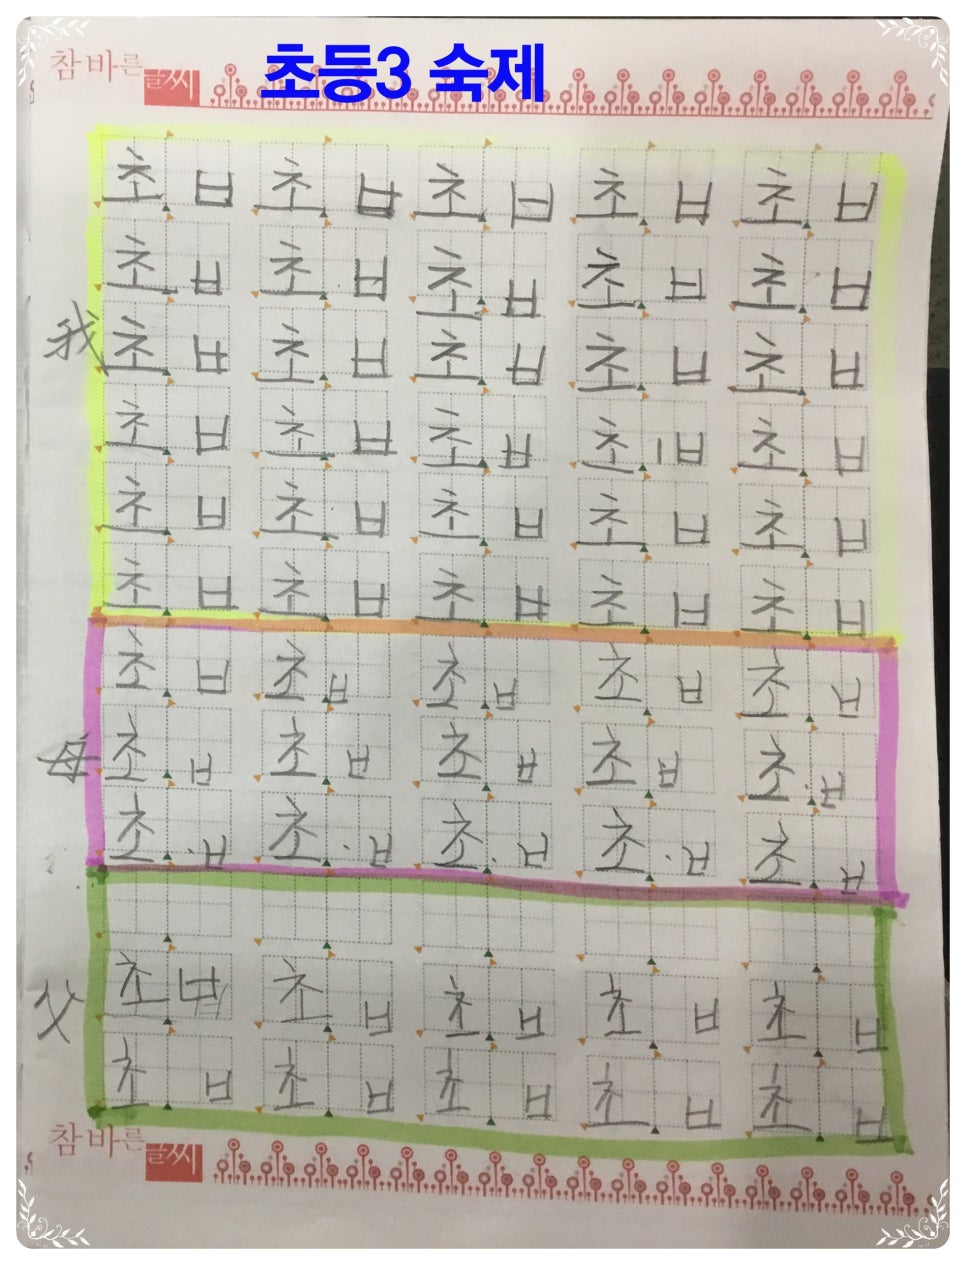 참바른글씨 초등3 숙제
초 ㅂ 초 ㅂ 초 ㅂ 초 ㅂ 초 ㅂ
초 ㅂ 초 ㅂ 초 ㅂ 초 ㅂ 초 ㅂ
我 초 ㅂ 초 ㅂ 초 ㅂ 초 ㅂ 초 ㅂ
초 ㅂ 초 ㅂ 초 ㅂ 초 ㅣㅂ 초 ㅂ
초 ㅂ 초 ㅂ 초 ㅂ 초 ㅂ 초 ㅂ
초 ㅂ 초 ㅂ 초 ㅂ 초 ㅂ 초 ㅂ
초 ㅂ 초 ㅂ 초 ㅂ 초 ㅂ 초 ㅂ
母 초 ㅂ 초 ㅂ 초 ㅂ 초 ㅂ 초 ㅂ
초 ㅂ 초 ㅂ 초 ㅂ 초 ㅂ 초 ㅂ
父 초 초 ㅂ 초 ㅂ 초 ㅂ 초 ㅂ
초 ㅂ 초 ㅂ 초 ㅂ 초 ㅂ 초 ㅂ
참바른글씨